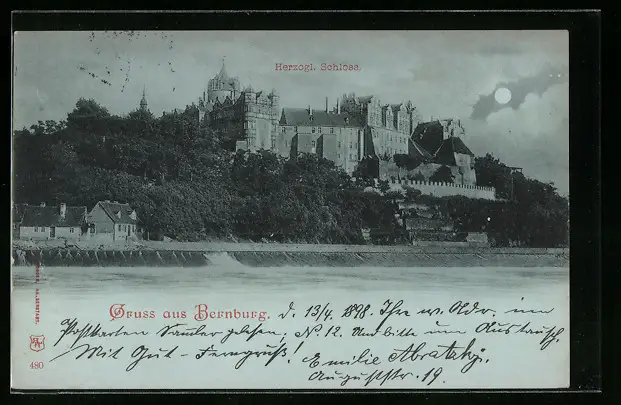 Herzogl. Schloss.
Gruss aus Bernburg. d. 13/4. 1898. Ihre w. Adr. im
Postkarten Sammler gelesen. No 12. Und bitte um Austausch.
Mit Gut-Ferngruß! Emilie Abratzky.
Auguststr. 19.
480